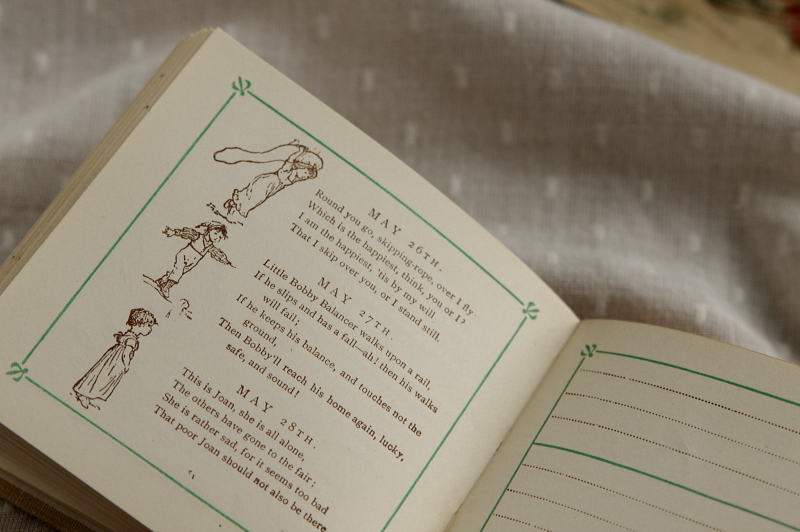 MAY 26TH.
Round you go, skipping-rope, over I fly.
Which is the happiest, think, you or I?
I am the happiest, 'tis by my will
That I skip over you, or I stand still.
MAY 27TH.
Little Bobby Balancer walks upon a rail,
If he slips and has a fall—ah! then his walks
will fail;
If he keeps his balance, and touches not the
ground,
Then Bobby'll reach his home again, lucky,
safe, and sound!
MAY 28TH.
This is Joan, she is all alone,
The others have gone to the fair;
She is rather sad, for it seems too bad
That poor Joan should not also be there